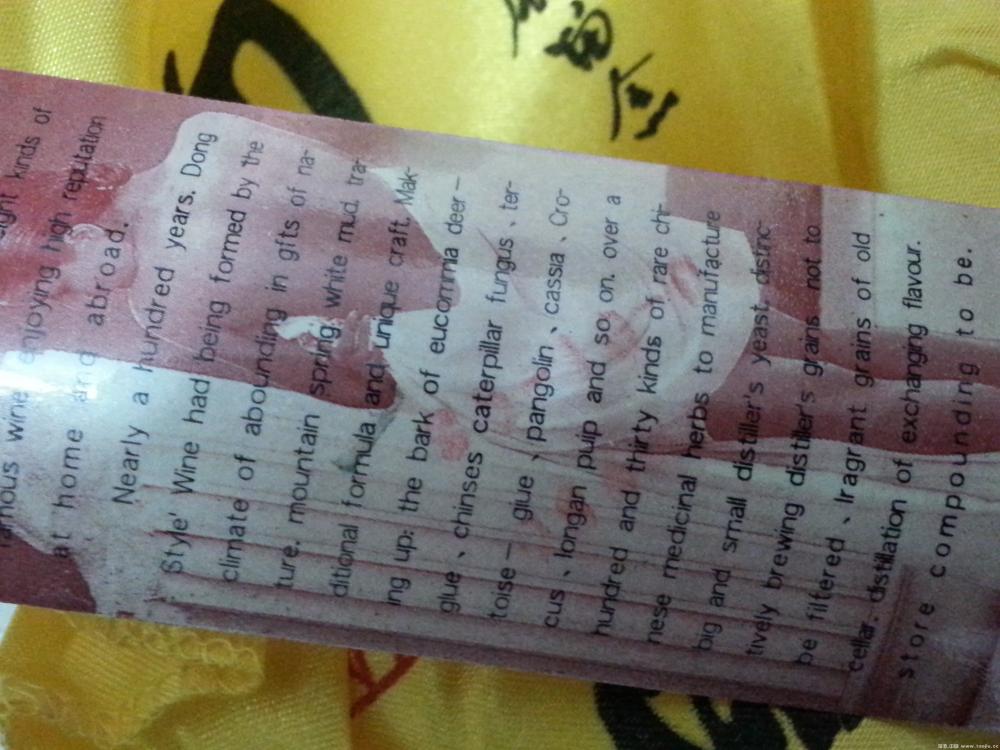 famous wine enjoying high reputation
at home and abroad.
Nearly a hundred years. Dong
Style' Wine had being formed by the
climate of abounding in gifts of na-
ture. mountain spring, white mud, tra-
ditional formula and unique craft. Mak-
ing up: the bark of eucommia deer-
glue、chinses caterpillar fungus、ter-
toise- glue、pangolin、cassia、Cro-
cus、longan puip and so on. over a
hundred and thirty kinds of rare chi-
nese medicinal herbs to manufacture
big and small distiller's yeast. distinc-
tively brewing distiller's grains not to
be filtered、lragrant grains of old
cellar. distillation of exchanging flavour.
store compounding to be.
kinds of